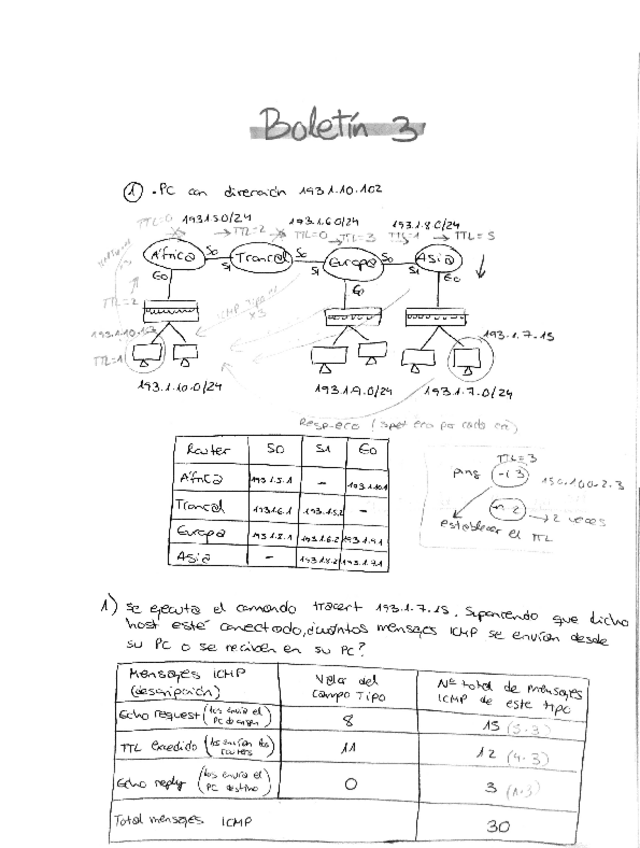 Boletín 3
① · PC con dirección 193.1.10.102
TTL=0 193.1.5.0/24 193.1.6.0/24 193.1.8.0/24
→ TTL=2 TTL=0 → TTL=3 TTL=1 → TTL=5
África S0 S1 Trancal S0 S1 Europa S0 S1 Asia
E0 E0 E0
TTL=2 ICMP Tipo 11
x3
193.1.7.15
TTL=1
193.1.10.0/24 193.1.9.0/24 193.1.7.0/24
Resp-eco
Router S0 S1 E0
África 193.1.5.1 - 193.1.10.1
Trancal 193.1.6.1 193.1.5.2 -
Europa 193.1.8.1 193.1.6.2 193.1.9.1
Asia - 193.1.8.2 193.1.7.1
TTL=3
ping -i 3 150.100.2.3
-n 2 → 2 veces
establecer el TTL
1) Se ejecuta el comando tracert 193.1.7.15. Suponiendo que dicho
host esté conectado, ¿cuántos mensajes ICMP se envían desde
su PC o se reciben en su PC?
Mensajes ICMP (descripción) Valor del campo TIPO Nº total de mensajes ICMP de este tipo
Echo request (los envía el PC 8 15 (5·3)
TTL excedido (los envían los routers 11 12 (4·3)
Echo reply (los envía el PC destino) 0 3 (1·3)
Total mensajes ICMP 30